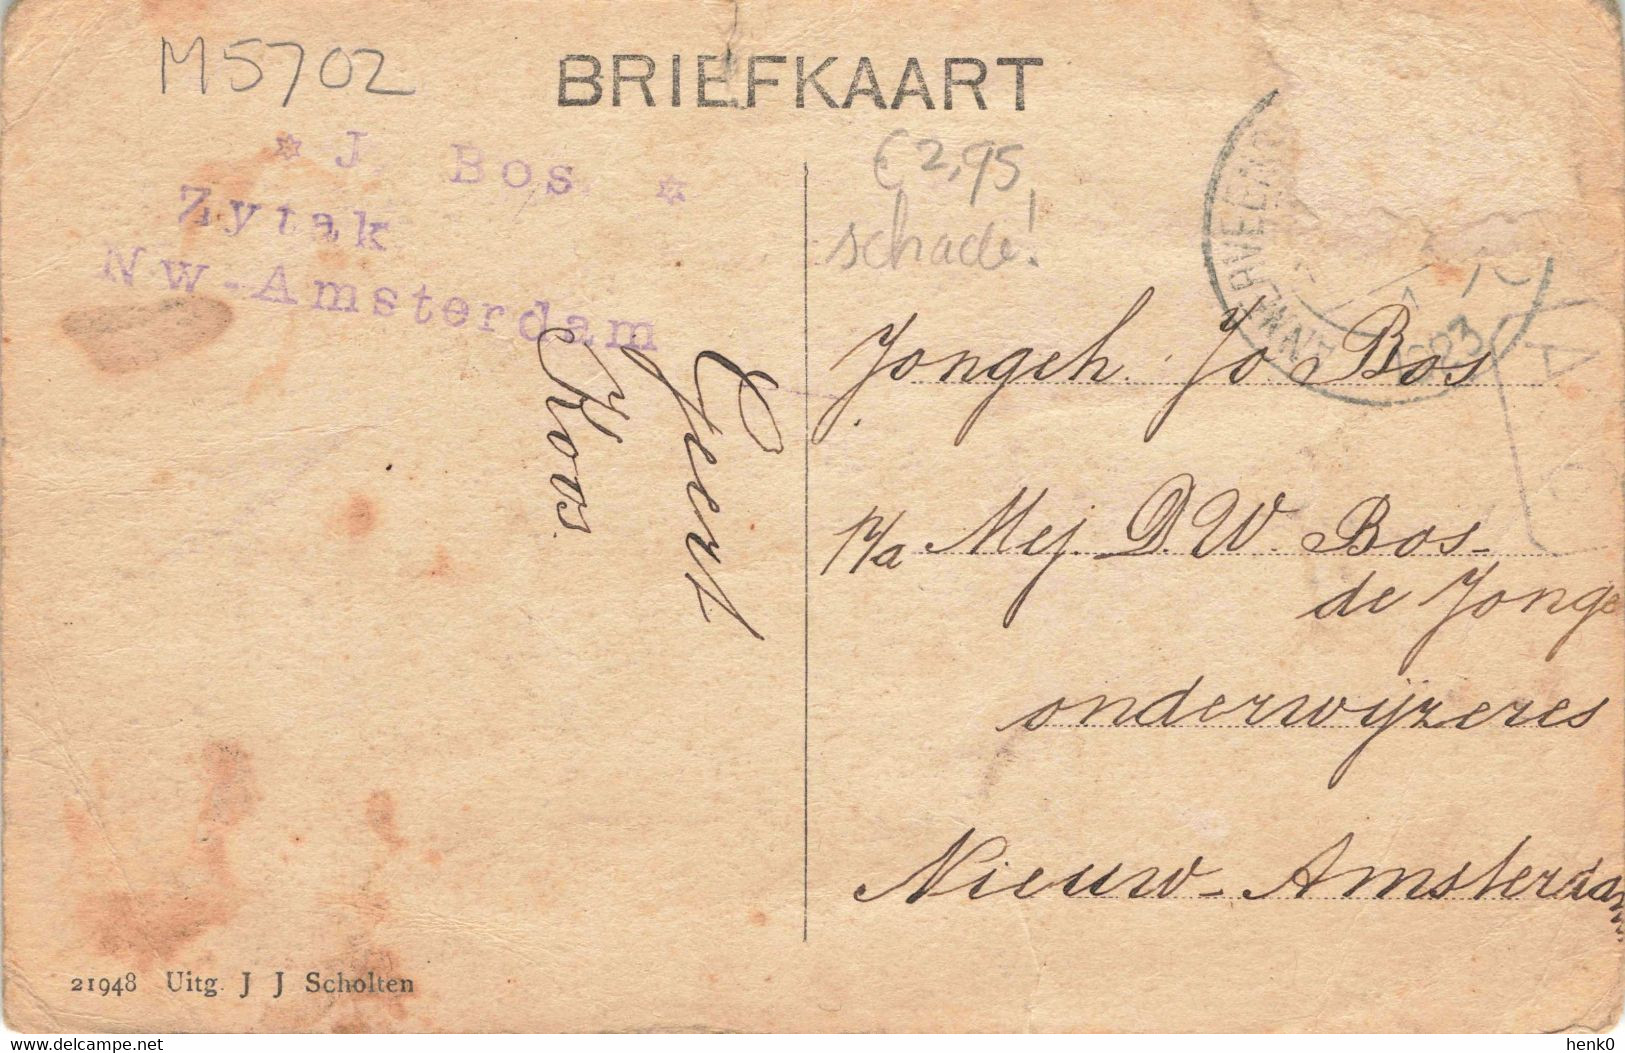 M5702
BRIEFKAART
* J. Bos. *
Zytak
Nw-Amsterdam
€ 2,95
schade!
1923
Geert
Koos.
Jongeh. Jo. Bos
p/a Mej. D. W. Bos-
de Jonge
onderwijzeres
Nieuw-Amsterdam
21948 Uitg. J J Scholten
www.delcampe.net
henk0